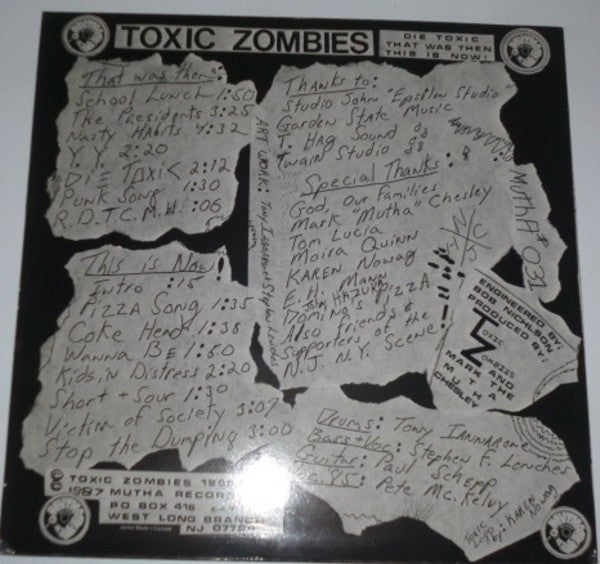 TOXIC ZOMBIES
DIE TOXIC
THAT WAS THEN
THIS IS NOW!
That was then:
School Lunch 1:50
The Presidents 3:25
Nasty Habits 4:32
Y.Y. 2:20
DiE TOXiC 2:12
Punk Song 1:30
R.D.T.C.M.H. :06
This is Now!
Intro :15
Pizza Song 1:35
Coke Head 1:38
Wanna Be 1:50
Kids in Distress 2:20
Short + Sour 1:30
Victim of Society 3:07
Stop the Dumping 3:00
ART WORK: Tony Iannarone + Stephen Lenches
Thanks to:
Studio John "Epsilon Studio"
Garden State Music
T. Hag Sound
Twain Studio
Special Thanks:
God, our Families
Mark "Mutha" Chesley
Tom Lucia
Moira Quinn
Karen Nowag
E.H. Mann
Tom Hazuka
Domino's Pizza
Also friends &
Supporters of the
N.J. N.Y. Scene!
MuthA# 031
ENGINEERED BY
BOB NICHLSON
PRODUCED BY:
TOXIC
ZOMBIES
AND
MARK
THE
MUTHA
CHESLEY
Drums: Tony Iannarone
Bass + Voic: Stephen F. Lenches
Guitar: Paul Schepp
Pete Mc. Kelvy
Toxic
Logo
by: Karen
Nowag
TOXIC ZOMBIES
1987 MUTHA RECORD
PO BOX 416
WEST LONG BRANCH
NJ